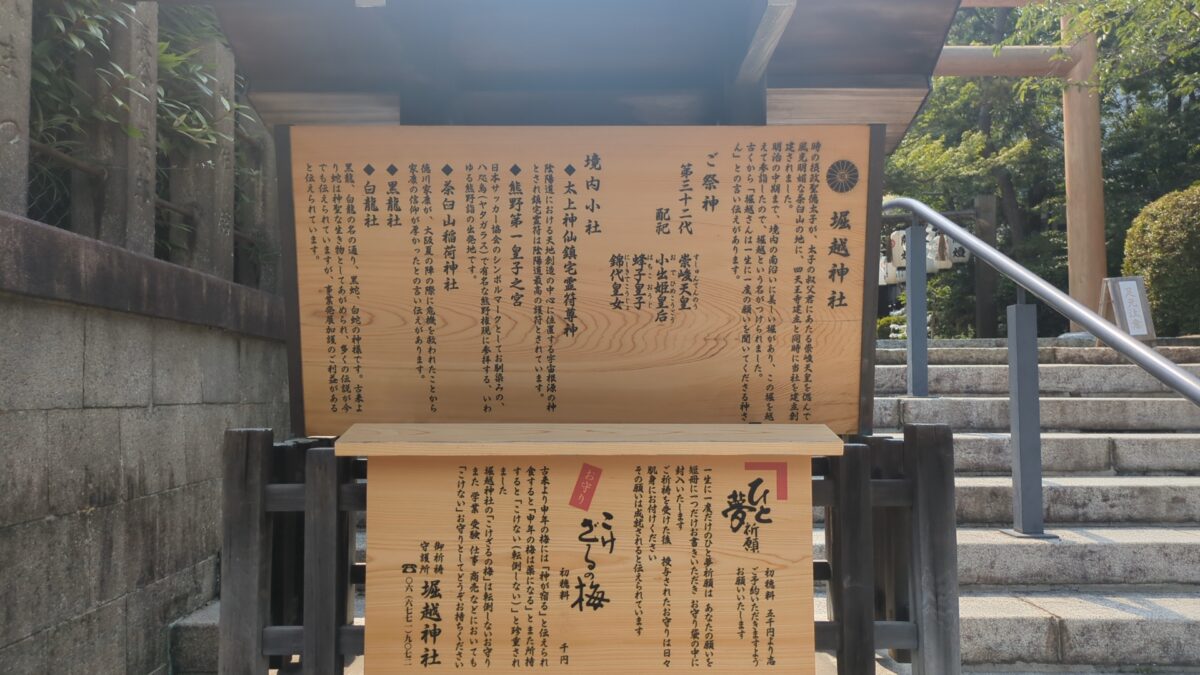 堀越神社
時の摂政聖徳太子が、太子の叔父君にあたる崇峻天皇を偲んで
風光明媚な茶臼山の地に、四天王寺建立と同時に当社を建立創
建されました。
明治の中期まで、境内の南沿いに美しい堀があり、この堀を越
えて参詣したので、堀越という名がつけられました。
古くから「堀越さんは一生に一度の願いを聞いてくださる神さ
ん」との言い伝えがあります。
ご祭神
第三十二代 崇峻天皇
すしゅんてんのう
配祀 小出姫皇后
おでひめこうごう
蜂子皇子
はちこおうじ
錦代皇女
にしきてこうじょ
境内小社
◆太上神仙鎮宅霊符尊神
陰陽道における天地創造の中心に位置する宇宙根源の神
とされ鎮宅霊符は陰陽道最高の護符とされています。
◆熊野第一皇子之宮
日本サッカー協会のシンボルマークとしてお馴染みの、
八咫烏(ヤタガラス)で有名な熊野権現に参拝する、いわ
ゆる熊野詣の出発地です。
◆茶臼山稲荷神社
徳川家康が、大阪夏の陣の際に危機を救われたことから
家康の信仰が厚かったとの言い伝えがあります。
◆黒龍社
◆白龍社
黒龍、白龍の名の通り、黒蛇、白蛇の神様です。古来よ
り蛇は神聖な生き物としてあがめられ、多くの伝説が今
でも伝えられていますが、事業発展加護のご利益がある
と伝えられています。
ひと夢祈願
初穂料 五千円より志
ご予約いただきますよう
お願いいたします
一生に一度だけのひと夢祈願は あなたの願いを
短冊に一つだけお書きいただき お守り袋の中に
封入いたします
ご祈祷を受けた後 授与されたお守りは日々
肌身にお付けください
その願いは成就されると伝えられています
お守り
こけざるの梅
初穂料 千円
古来より申年の梅には「神が宿る」と伝えられ
食すると「申年の梅は薬になる」とまた所持
すると「こけない(転倒しない)ご」と珍重され
ました
堀越神社の「こけざるの梅」は転倒しないお守り
また 学業 受験 仕事 商売などにおいても
「こけない」お守りとしてどうぞお持ちください
御祈祷
守護所 堀越神社
☎〇六(六七七一)九〇七二